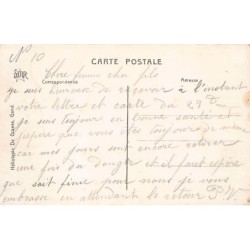 No 10
CARTE POSTALE
Correspondance
Adresse
Chère femme cher fils
je suis heureuse de recevoir à l'instant
votre lettre et carte du 23
je suis toujours en bonne santé et
j'espère que vous êtes toujours de même
car mes jours sont encore retirer
une fois du danger et il faut espérer
que soit finie pour nous je vous
embrasse en attendant le retour P.V.
Héliotypie De Graeve, Gand